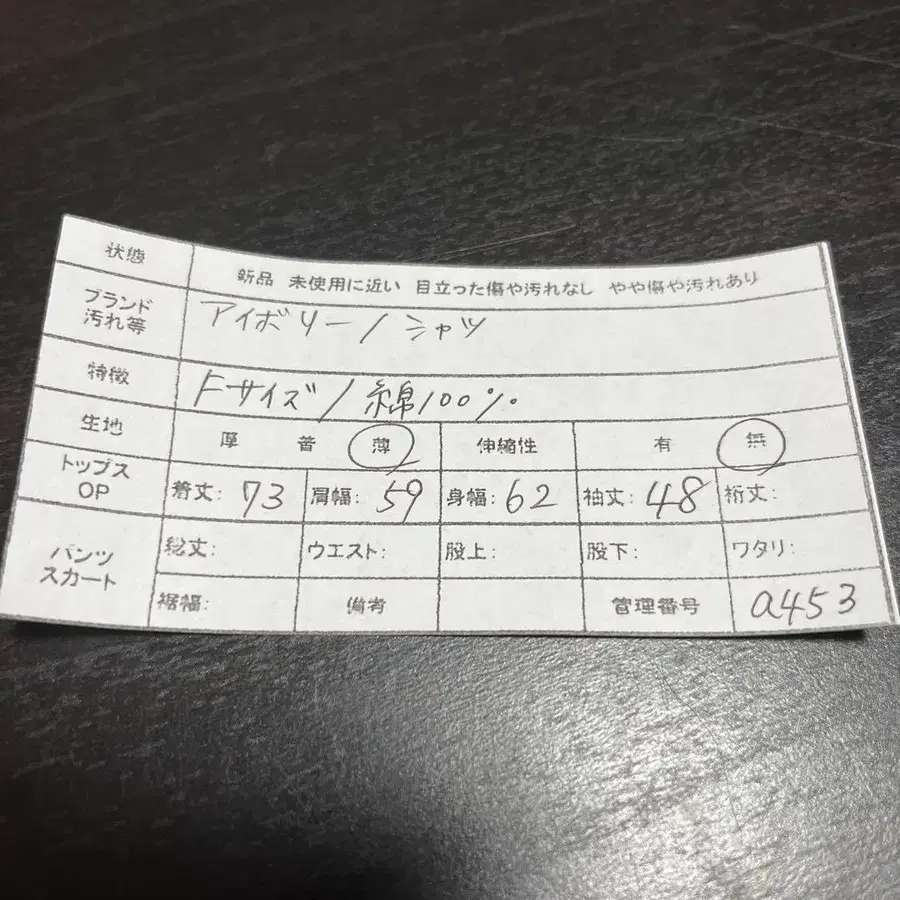 状態 新品 未使用に近い 目立った傷や汚れなし やや傷や汚れあり
ブランド 汚れ等 アイボリー/シャツ
特徴 Fサイズ/綿100%
生地 厚 普 薄 伸縮性 有 無
トップス OP 着丈: 73 肩幅: 59 身幅: 62 袖丈: 48 裄丈:
パンツ スカート 総丈: ウエスト: 股上: 股下: ワタリ:
裾幅: 備考 管理番号 a453